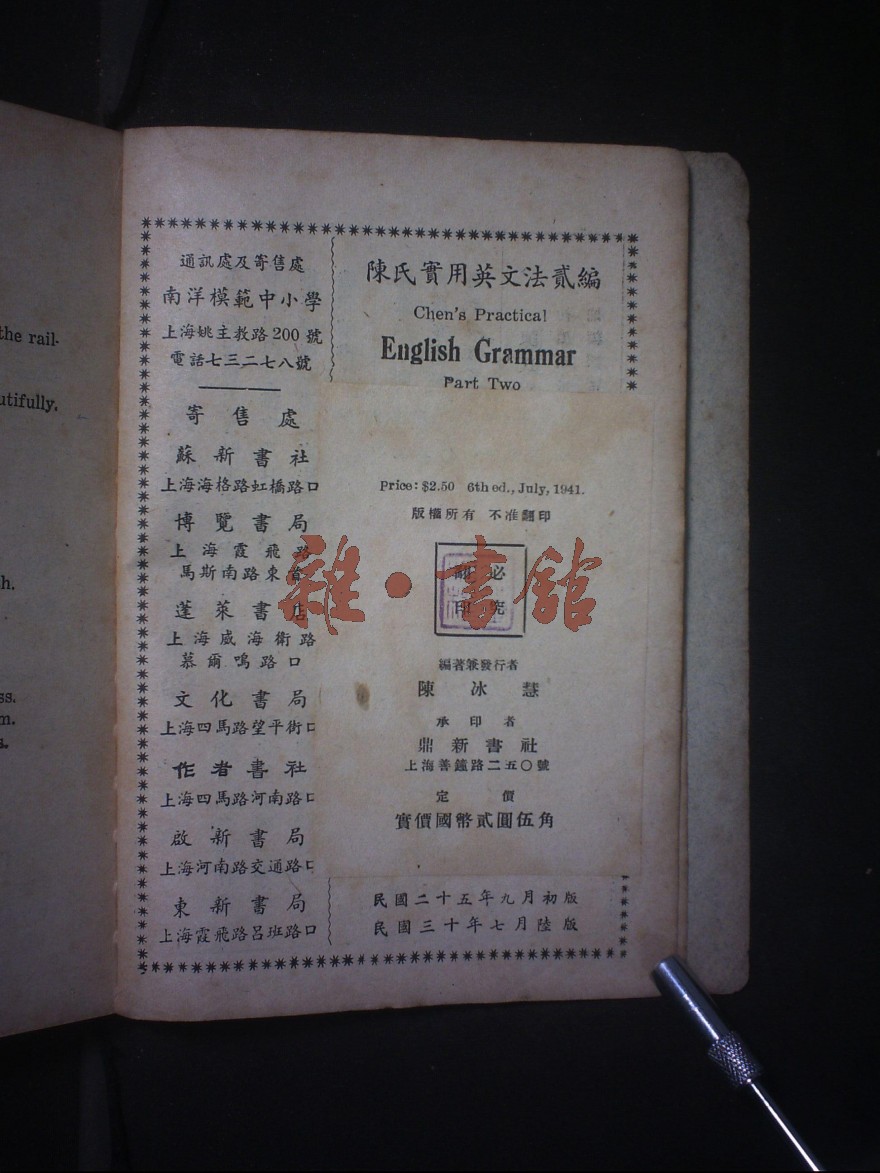 the rail-
utifully.
h.
ss.
m.
s.
通訊處及寄售處
南洋模範中小學
上海姚主教路200號
電話七三二七八號
寄售處
蘇新書社
上海海格路虹橋路口
博覽書局
上海霞飛路
馬斯南路東首
蓬萊書店
上海威海衛路
慕爾鳴路口
文化書局
上海四馬路望平街口
作者書社
上海四馬路河南路口
啟新書局
上海河南路交通路口
東新書局
上海霞飛路呂班路口
陳氏實用英文法貳編
Chen's Practical
English Grammar
Part Two
Price: $2.50 6th ed., July, 1941.
版權所有 不准翻印
翻必
印究
編著兼發行者
陳冰慧
承印者
鼎新書社
上海善鐘路二五〇號
定價
實價國幣貳圓伍角
民國二十五年九月初版
民國三十年七月陸版
雜·書館